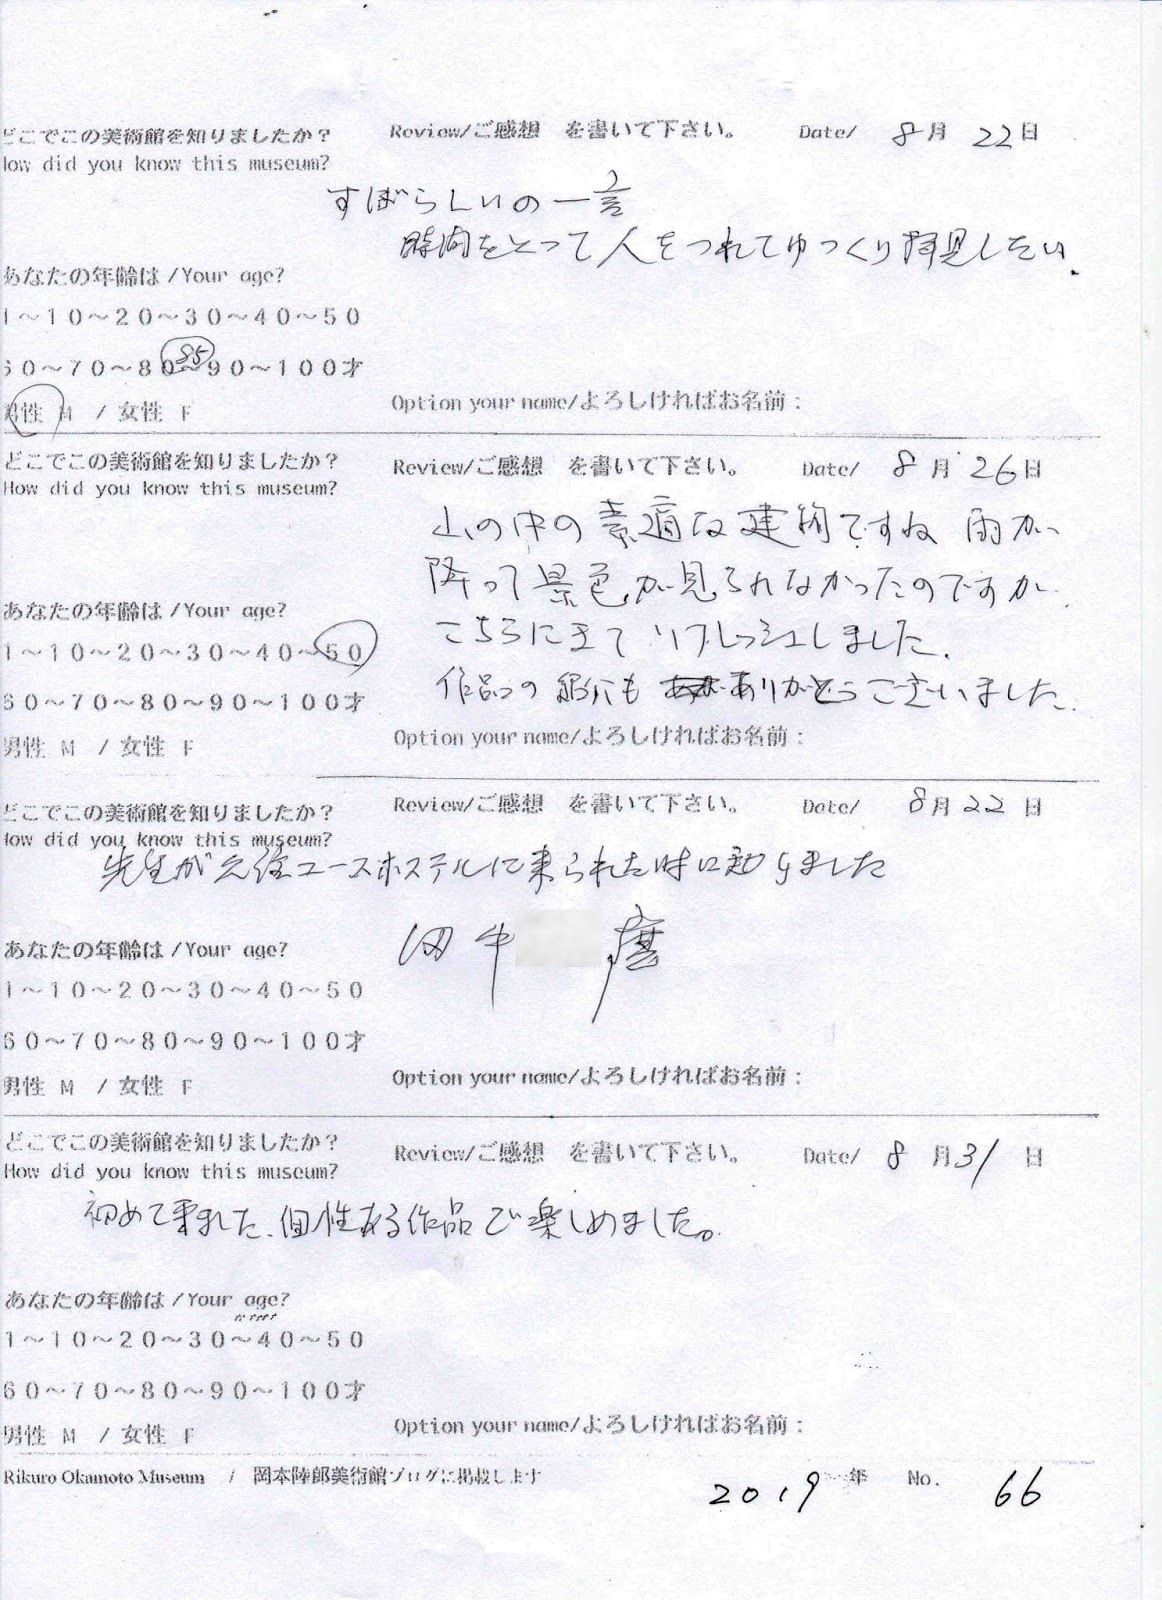 どこでこの美術館を知りましたか？ Review/ご感想 を書いて下さい。 Date/ 8月 22日
How did you know this museum?
すばらしいの一言
時間をとって人をつれてゆっくり拝見したい.
あなたの年齢は/Your age?
1～10～20～30～40～50
60～70～80～90～100才
85
男性 M / 女性 F Option your name/よろしければお名前：
どこでこの美術館を知りましたか？ Review/ご感想 を書いて下さい。 Date/ 8月 26日
How did you know this museum?
山の中の素適な建物ですね 雨が
降って景色が見られなかったのですが
あなたの年齢は/Your age?
1～10～20～30～40～50
こちらにきて リフレッシュしました.
60～70～80～90～100才
作品の紹介も ありがとうございました.
男性 M / 女性 F Option your name/よろしければお名前：
どこでこの美術館を知りましたか？ Review/ご感想 を書いて下さい。 Date/ 8月22日
How did you know this museum?
先生が ユースホステルに来られた時に知りました
あなたの年齢は/Your age?
田中 麿
1～10～20～30～40～50
60～70～80～90～100才
男性 M / 女性 F Option your name/よろしければお名前：
どこでこの美術館を知りましたか？ Review/ご感想 を書いて下さい。 Date/ 8月31日
How did you know this museum?
初めて来ました、個性ある作品で楽しめました。
あなたの年齢は/Your age?
1～10～20～30～40～50
60～70～80～90～100才
男性 M / 女性 F Option your name/よろしければお名前：
Rikuro Okamoto Museum / 岡本陸郎美術館ブログに掲載します 2019年 No. 66